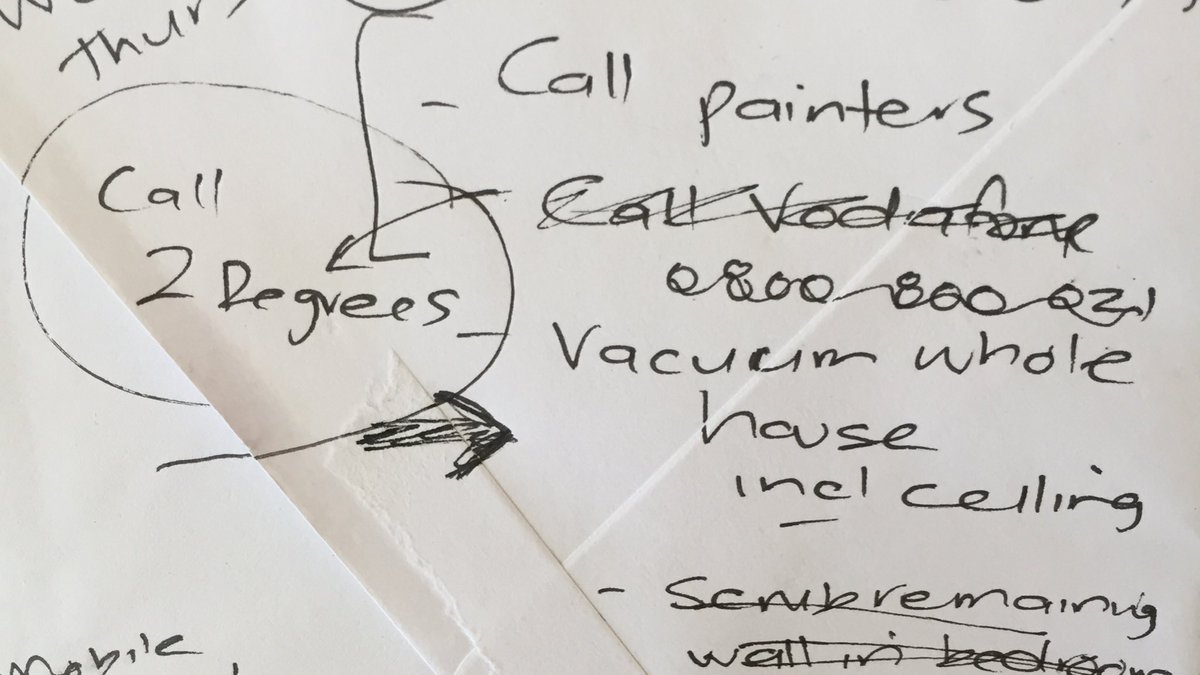 Thur
- Call painters
Call
2 Degrees
- Call Vodafone
0800 800 021
- Vacuum whole
house
incl ceiling
- Scrub remaining
wall in bedroom
Mobile